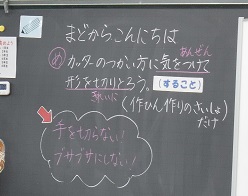 まどからこんにちは
め カッターのつかい方に気をつけて
あんぜん
形を切りとろう。(すること)
きれいに
(作ひん作りのさいしょだけ)
手を切らない!
ブサブサにしない!